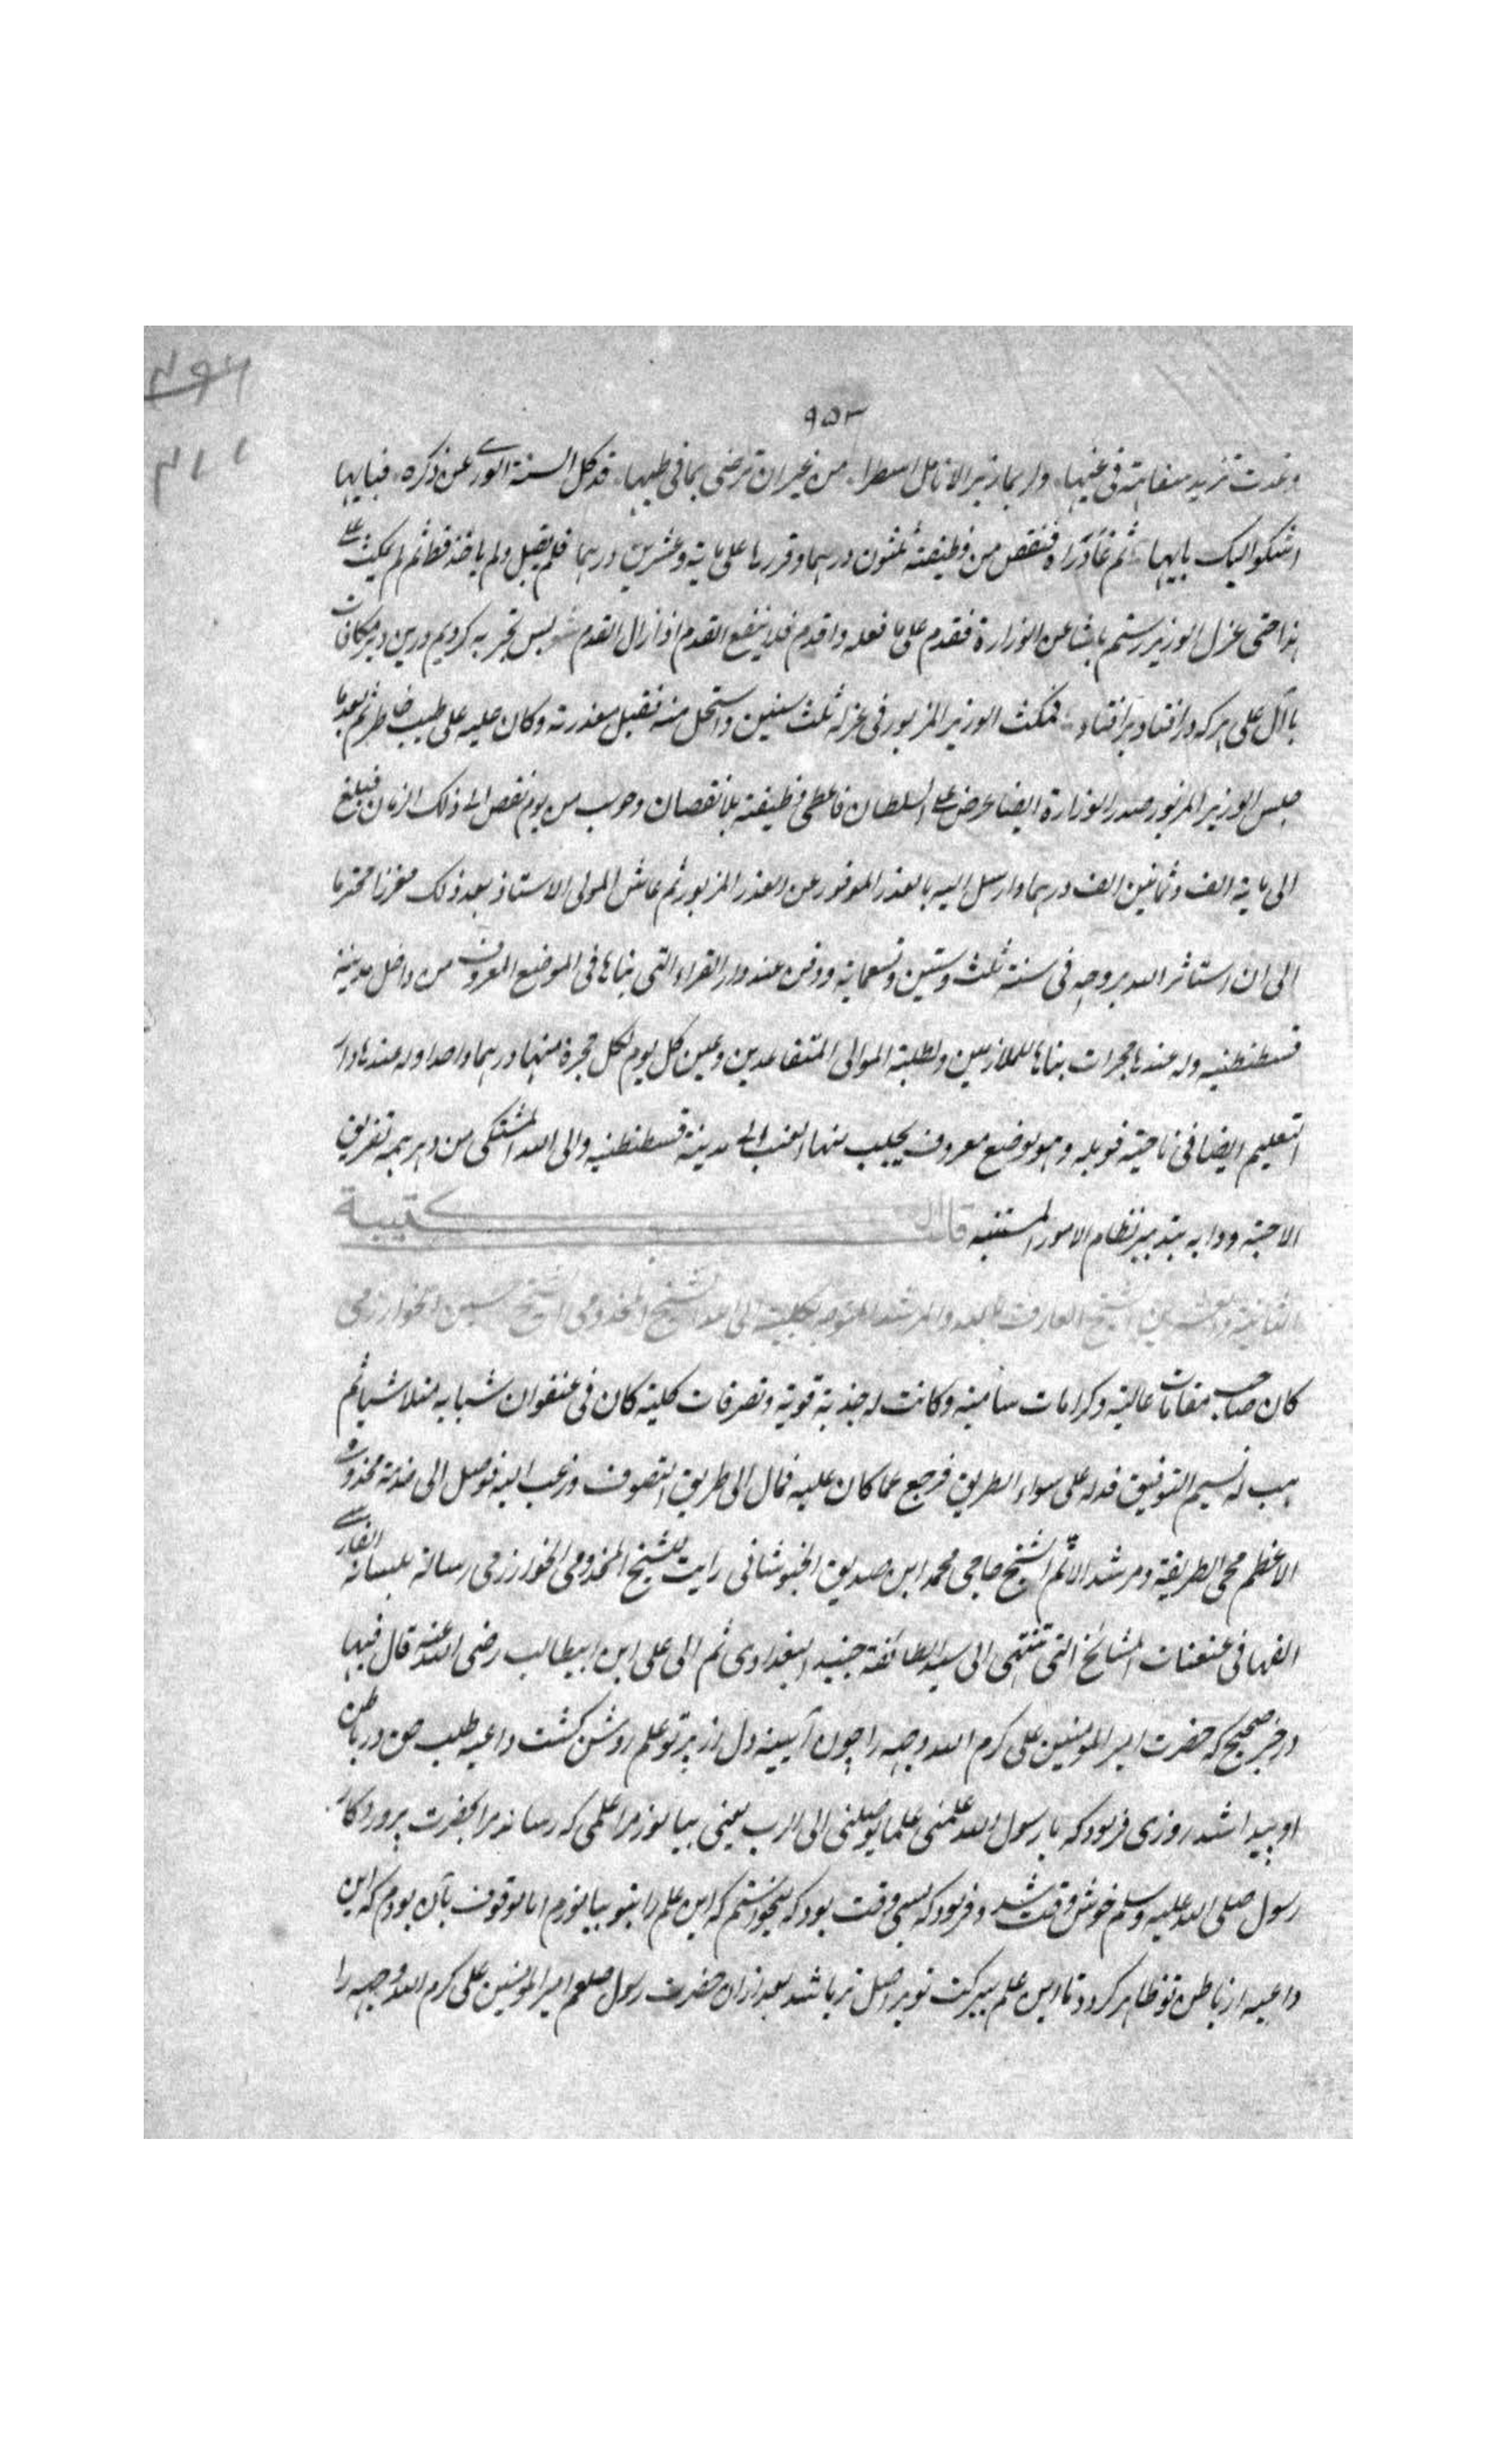 ٤٩٤
٣١١
٩٥٣
وغدت تزيد سفاهة فى غيها وار بما زبر الانامل اسطرا من غير ان ترضى بما فى طيها قد كل السنة الورى عن ذكره فبايها
اشكو اليك بايها ثم فنقص من وظيفته ثلثون درهما وقررها على ماية وعشرين درهما فلم يقبل ولم ياخذ قط ثم لم يمكث على
هذا حتى عزل الوزير رستم باشا عن الوزارة فقدم على ما فعله واقدم فلا ينفع القدم اذا زال القدم شعر بس تجربه كرديم درين دير مكافات
با آل على هركه در افتاد بر افتاد فمكث الوزير المزبور فى عزله ثلث سنين واستحل منه فقبل معذرته وكان عليه على طيب خاطر ثم بعد ما
جلس الوزير المزبور صدر الوزارة ايضا عرض على السلطان فاعطى وظيفته بلا نقصان وحوسب من يوم نقص الى ذلك الزمان فبلغ
الى ماية الف وثمانين الف درهما وارسل اليه بالعذر الموفور عن الغدر المزبور ثم عاش المولى الاستاذ بعد ذلك معززا محترما
الى ان استاثر الله بروحه فى سنة ثلث وستين وتسعماية ودفن عند دار القراء التى بناها فى الموضع المعروف من داخل مدينة
قسطنطنيه وله عندها حجرات بناها للملازمين ولطلبة الموالى المتقاعدين وعين كل يوم لكل حجرة منها درهما واحدا وله عندها دار
التعليم ايضا فى ناحية وهو موضع معروف يجلب منها العنب الى مدينة قسطنطنيه والى الله المشتكى من دهر همه تفريق
الاحبة ودابه تبديد نظام الامور المستتبه قال الكتيبة
الثانية والعشرين الشيخ العارف بالله والمرشد المتوجه بكليته الى الله الشيخ المخدومى الشيخ حسين الخوارزمى
كان صاحب مقامات عالية وكرامات سامية وكانت له جذبة قوية وتصرفات كلية كان فى عنفوان شبابه ثم
هب له نسيم التوفيق فدله على سواء الطريق فرجع عما كان عليه فمال الى طريق التصوف ورغب اليه فوصل الى خدمة مخدومه
الاعظم محى الطريقة ومرشد الامم الشيخ حاجى محمد ابن صديق الخبوشانى رايت للشيخ المخدومى الخوارزمى رسالة بلسانه الفارسى
الفها فى عنعنات المشائخ التى تنتهى الى سيد الطائفة جنيد البغدادى ثم الى على ابن ابيطالب رضى الله عنه قال فيها
در خبر صحيح كه حضرت امير المومنين على كرم الله وجهه را چون آيينه دل از پرتو علم روشن كشت داعيه طلب حق در باطن
او پيدا شد روزى فرمود كه يا رسول الله علمنى علما يوصلنى الى الرب يعنى بياموز مرا علمى كه رساند مرا بحضرت پروردكار
رسول صلى الله عليه وسلم خوش وقت شد و فرمود كه بسى وقت بود كه ميخواستم كه اين علم را بتو بياموزم اما موقوف بآن بودم كه اين
داعيه از باطن تو ظاهر كردد تا اين علم ببركت تو باشد بعد ازان حضرت رسول صلعم امير المومنين على كرم الله وجهه را